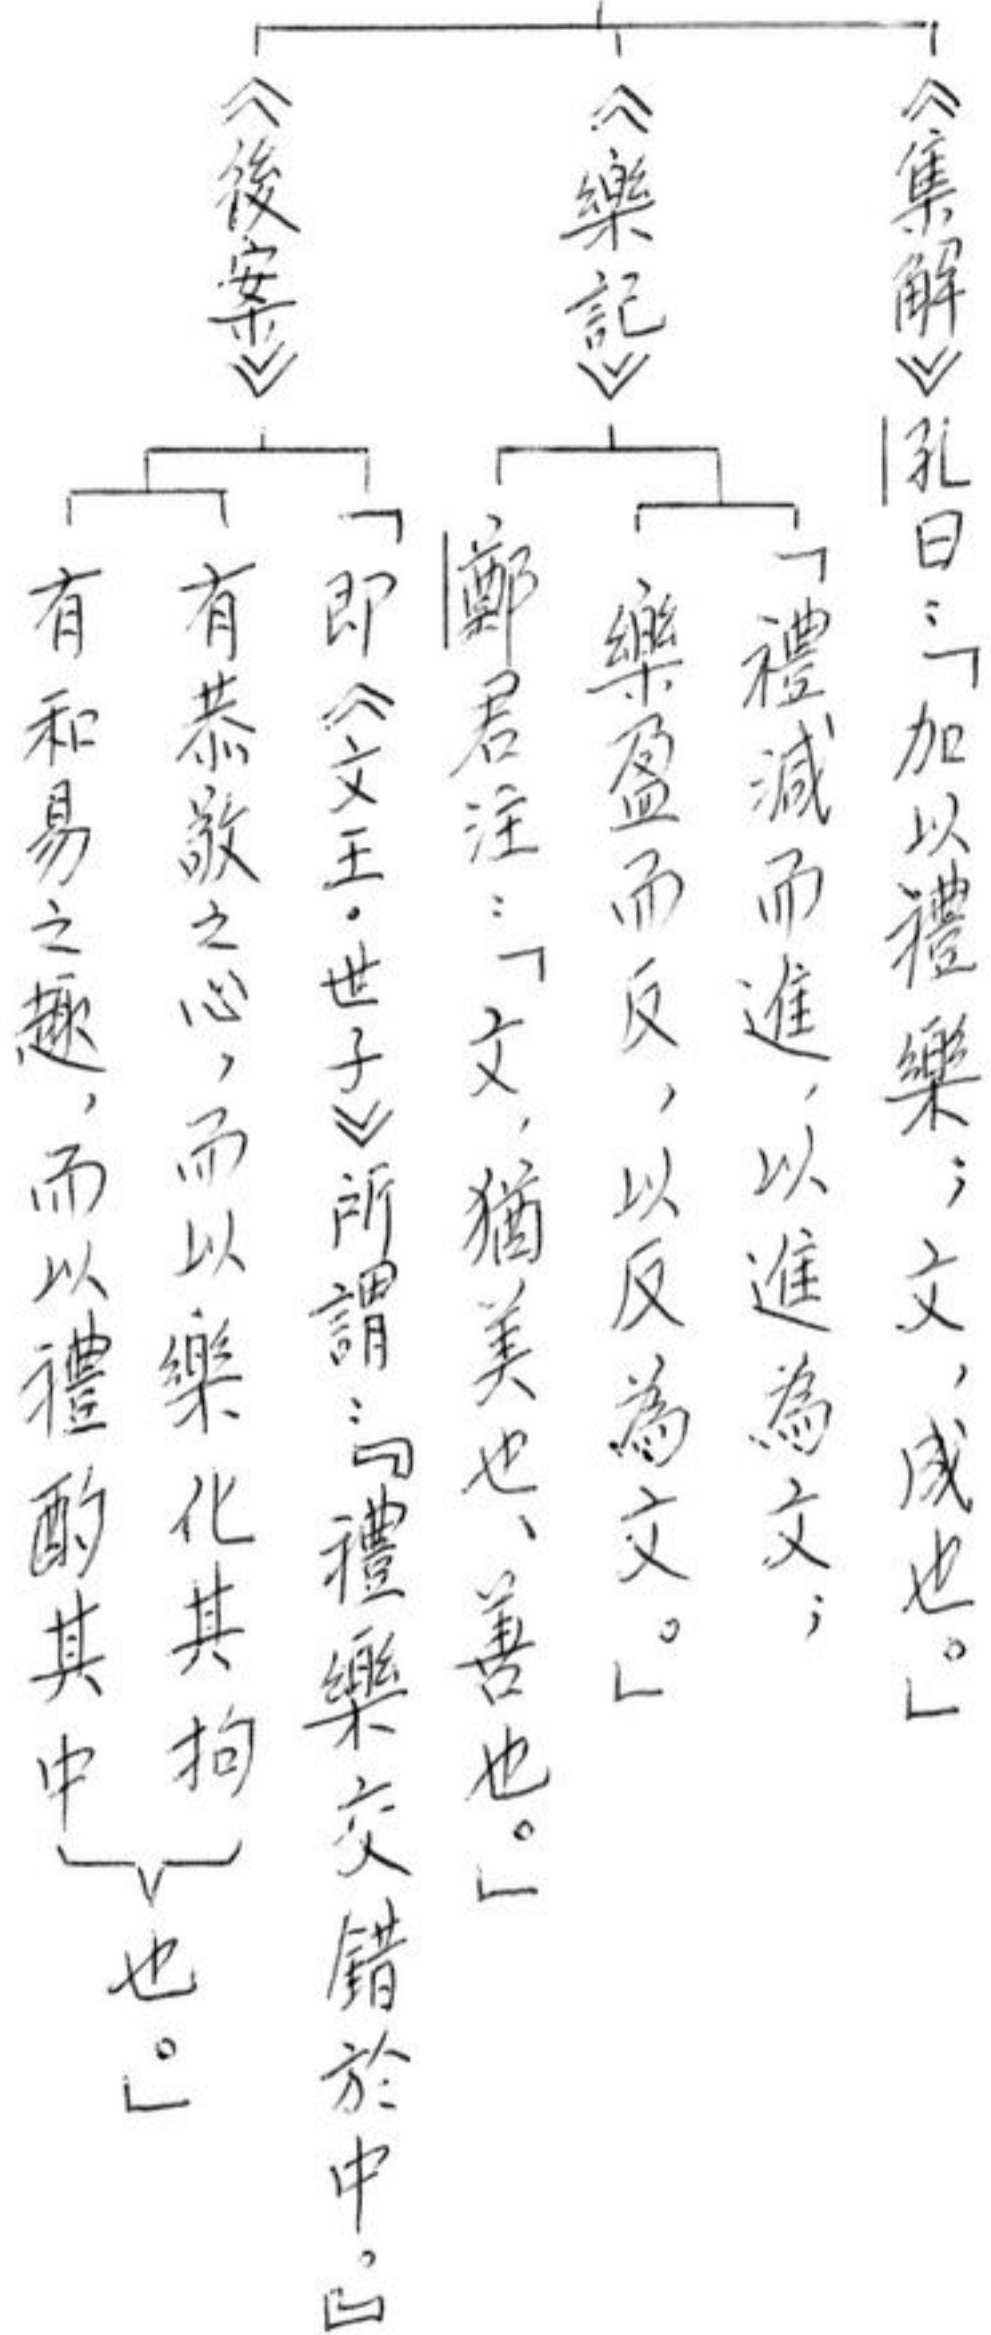 《集解》孔曰：「加以禮樂；文，成也。」
《樂記》
「禮減而進，以進為文；
樂盈而反，以反為文。」
鄭君注：「文，猶美也、善也。」
《後案》
「即《文王。世子》所謂：『禮樂交錯於中。』
有恭敬之心，而以樂化其拘
有和易之趣，而以禮酌其中
也。」